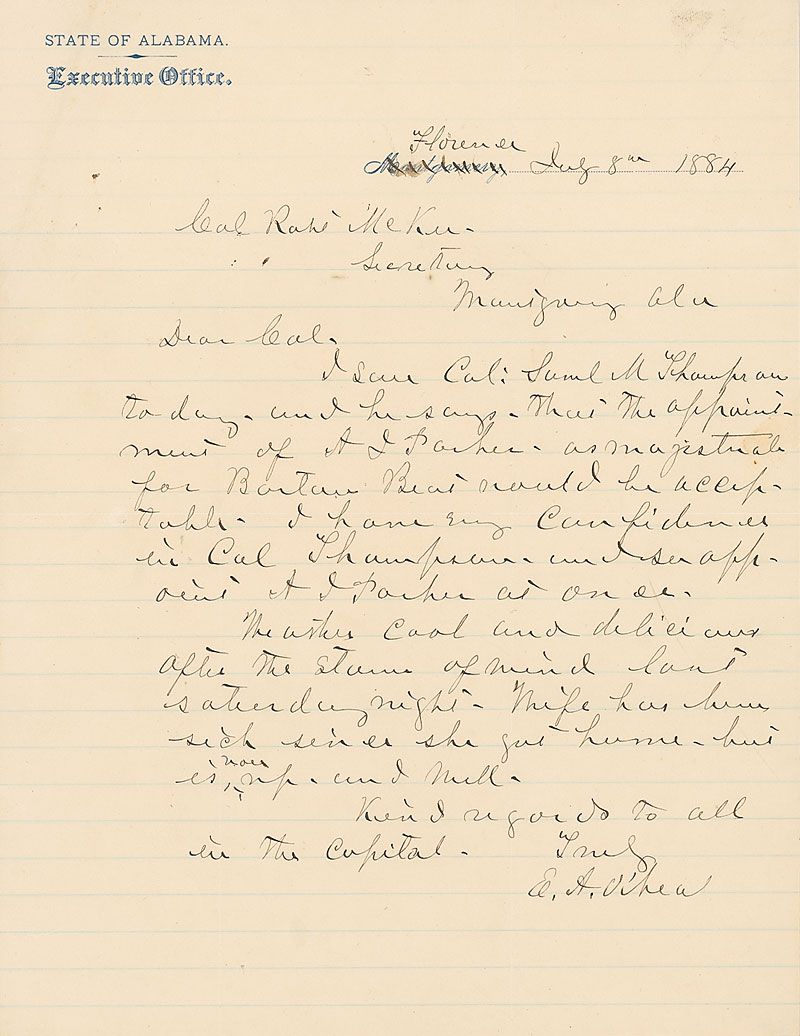 STATE OF ALABAMA.
Executive Office.
Florence
Montgomery, July 8th 1884
Col Robt McKee-
Secretary
Montgomery Ala
Dear Col-
I saw Col: Saml M Thompson
to day- and he says- that the appoint-
ment of A J Parker- as magistrate
for Barton Beat would be accep-
table- I have every confidence
in Col Thompson- and so app-
oint A J Parker at once-
Weather cool and delicious
after the storm of wind last
saturday night- Wife has been
sick since she got home- but
is now up- and well-
Kind regards to all
in the capital- Truly
E. A. O'Neal